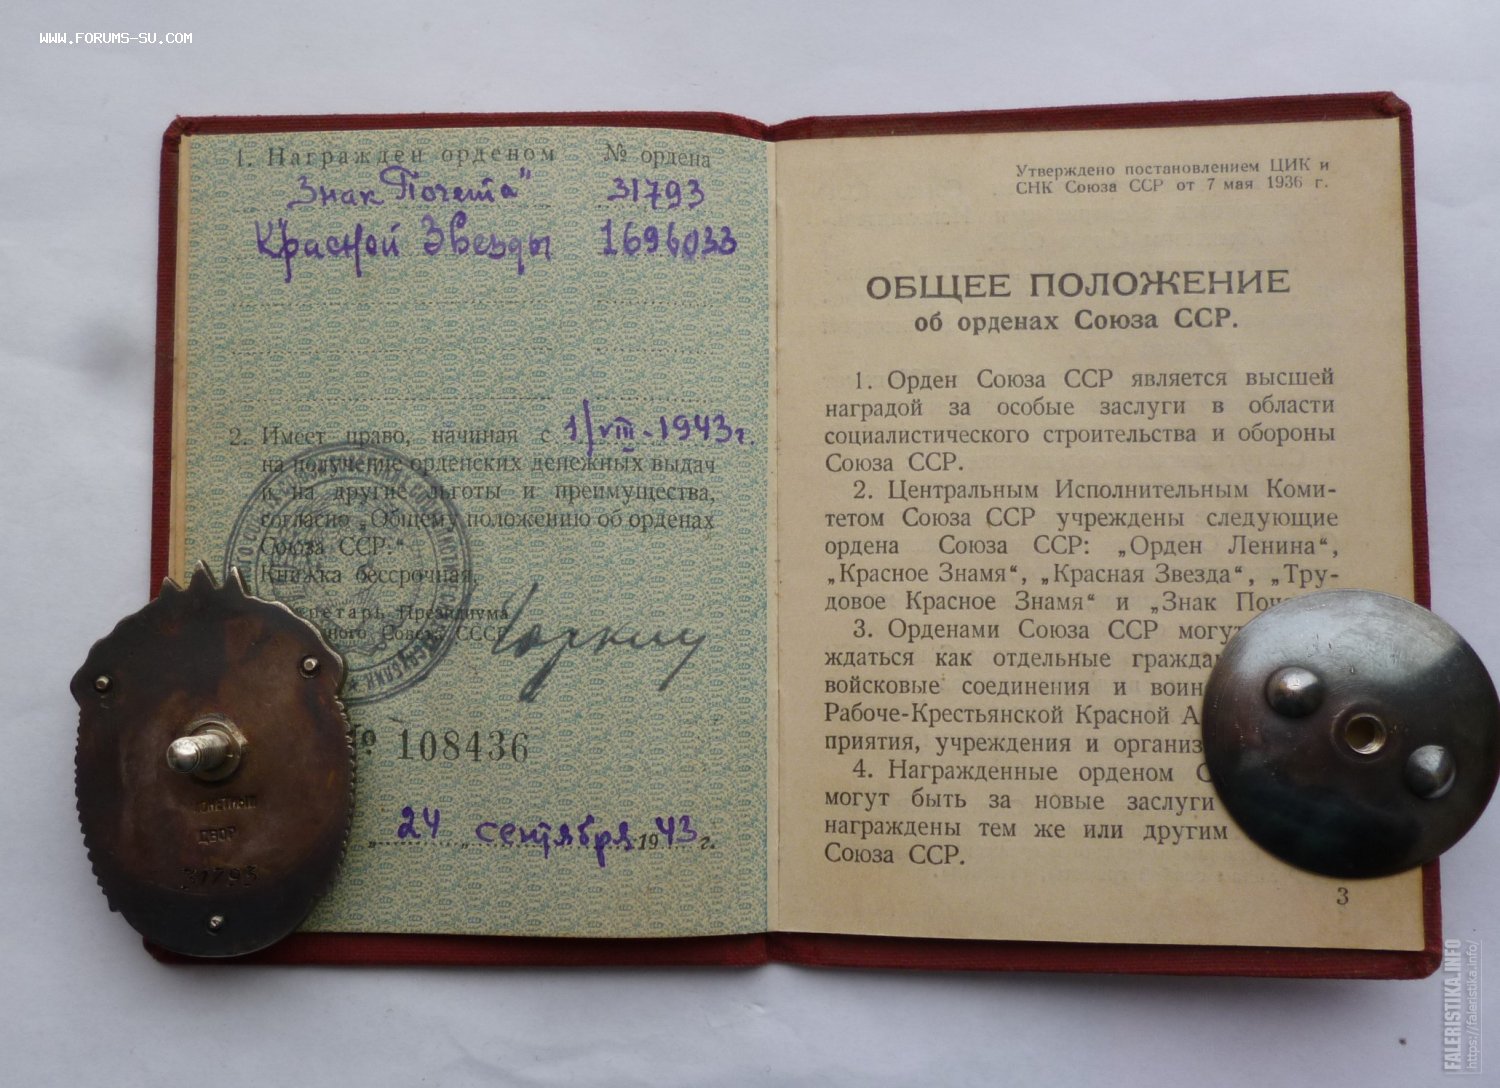 WWW.FORUMS-SU.COM
1. Награжден орденом № ордена
"Знак Почета" 31793
Красной Звезды 1696033
2. Имеет право, начиная с 1/VIII-1943г.
на получение орденских денежных выдач
и на другие льготы и преимущества,
согласно „Общему положению об орденах
Союза ССР.“
Книжка бессрочная.
Президиума
Совета СССР
№ 108436
„24„ сентября 1943 г.
МОНЕТНЫЙ
ДВОР
31793
Утверждено постановлением ЦИК и
СНК Союза ССР от 7 мая 1936 г.
ОБЩЕЕ ПОЛОЖЕНИЕ
об орденах Союза ССР.
1. Орден Союза ССР является высшей
наградой за особые заслуги в области
социалистического строительства и обороны
Союза ССР.
2. Центральным Исполнительным Коми-
тетом Союза ССР учреждены следующие
ордена Союза ССР: „Орден Ленина“,
„Красное Знамя“, „Красная Звезда“, „Тру-
довое Красное Знамя“ и „Знак
3. Орденами Союза ССР могут
ждаться как отдельные
войсковые соединения и
Рабоче-Крестьянской Красной
приятия, учреждения и
4. Награжденные орденом
могут быть за новые заслуги
награждены тем же или другим
Союза ССР.
3
FALERISTIKA.INFO
https://faleristika.info/